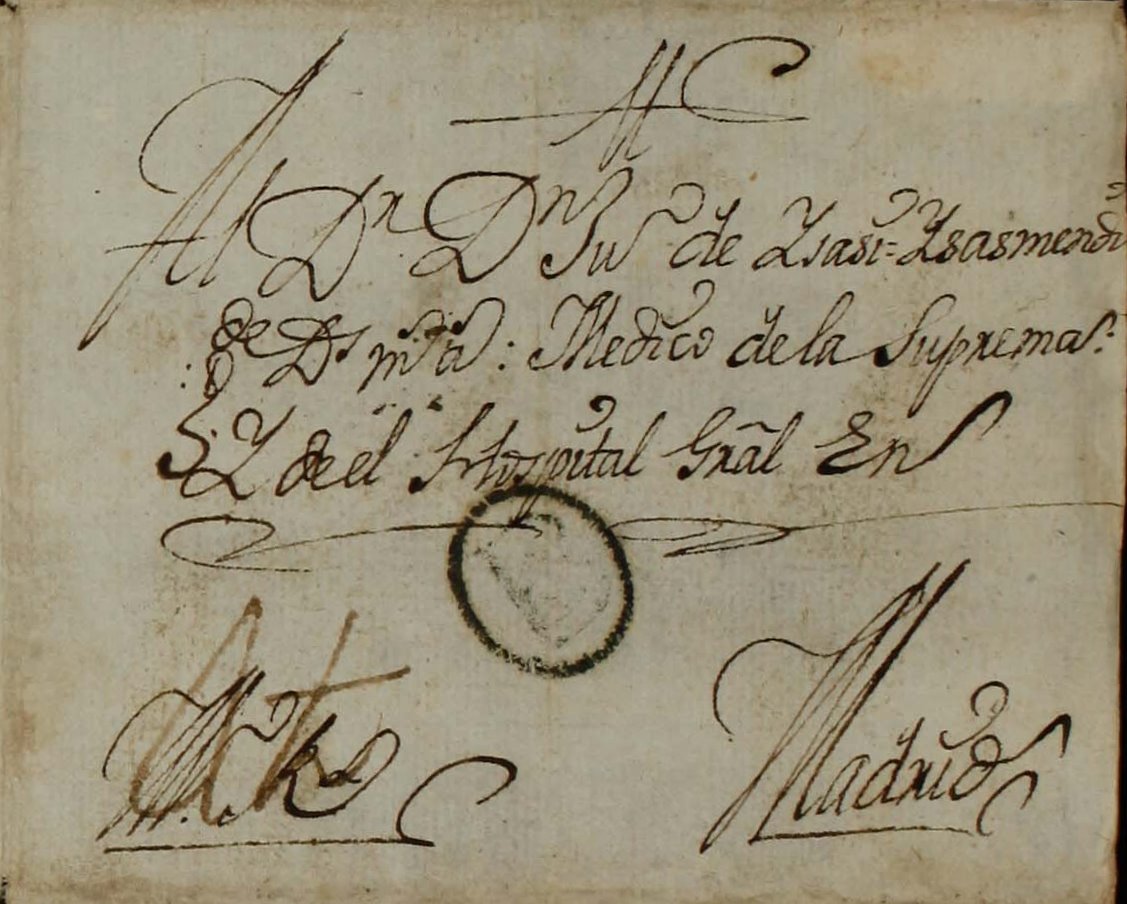 Al Dr. Dn Jun de Ysasi=Ysasmendi
gde Ds ms as: Medico de la Suprema:
Y de el Hospital Gral En
Madrid